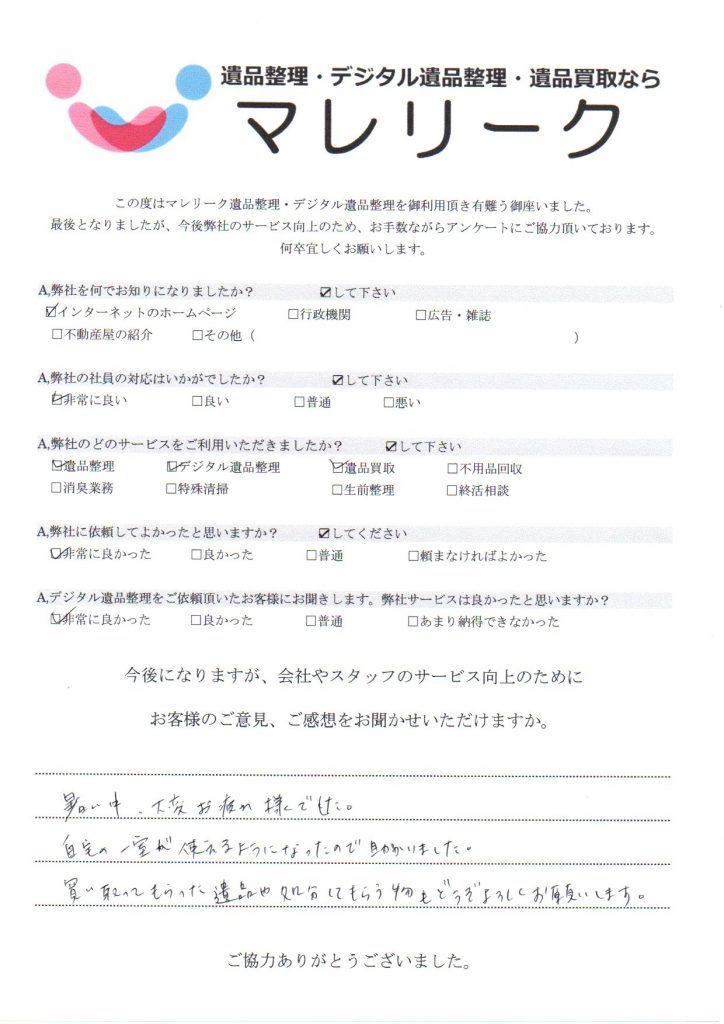 遺品整理・デジタル遺品整理・遺品買取なら
マレリーク
この度はマレリーク遺品整理・デジタル遺品整理を御利用頂き有難う御座いました。
最後となりましたが、今後弊社のサービス向上のため、お手数ながらアンケートにご協力頂いております。
何卒宜しくお願いします。
A,弊社を何でお知りになりましたか？ ☑して下さい
☑インターネットのホームページ □行政機関 □広告・雑誌
□不動産屋の紹介 □その他（ ）
A,弊社の社員の対応はいかがでしたか？ ☑して下さい
☑非常に良い □良い □普通 □悪い
A,弊社のどのサービスをご利用いただきましたか？ ☑して下さい
☑遺品整理 ☑デジタル遺品整理 ☑遺品買取 □不用品回収
□消臭業務 □特殊清掃 □生前整理 □終活相談
A,弊社に依頼してよかったと思いますか？ ☑してください
☑非常に良かった □良かった □普通 □頼まなければよかった
A,デジタル遺品整理をご依頼頂いたお客様にお聞きします。弊社サービスは良かったと思いますか？
☑非常に良かった □良かった □普通 □あまり納得できなかった
今後になりますが、会社やスタッフのサービス向上のために
お客様のご意見、ご感想をお聞かせいただけますか。
暑い中、大変お疲れ様でした。
自宅の一室が使えるようになったので助かりました。
買い取ってもらった遺品や処分してもらう物もどうぞよろしくお願いします。
ご協力ありがとうございました。